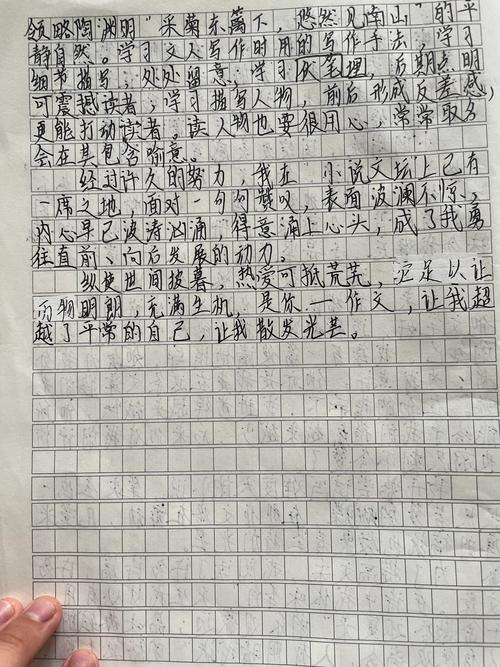 领略陶渊明"采菊东篱下，悠然见南山"的平
静自然。学习文人写作时用的写作手法，学习
细节描写，处处留意；学习伏笔埋，后期点明
可震撼读者；学习描写人物，前后形成反差感，
更能打动读者。读人物也要很用心，常常取名
会在其包含喻意。
经过许久的努力，我在小说文坛上已有
一席之地，面对一句句赞叹，表面波澜不惊，
内心早已波涛汹涌，得意涌上心头，成了我勇
往直前、向后发展的动力。
纵使世间披暮，热爱可抵荒芜，定足以让
万物明朗，充满生机，是你——作文，让我超
越了平常的自己，让我散发光芒。